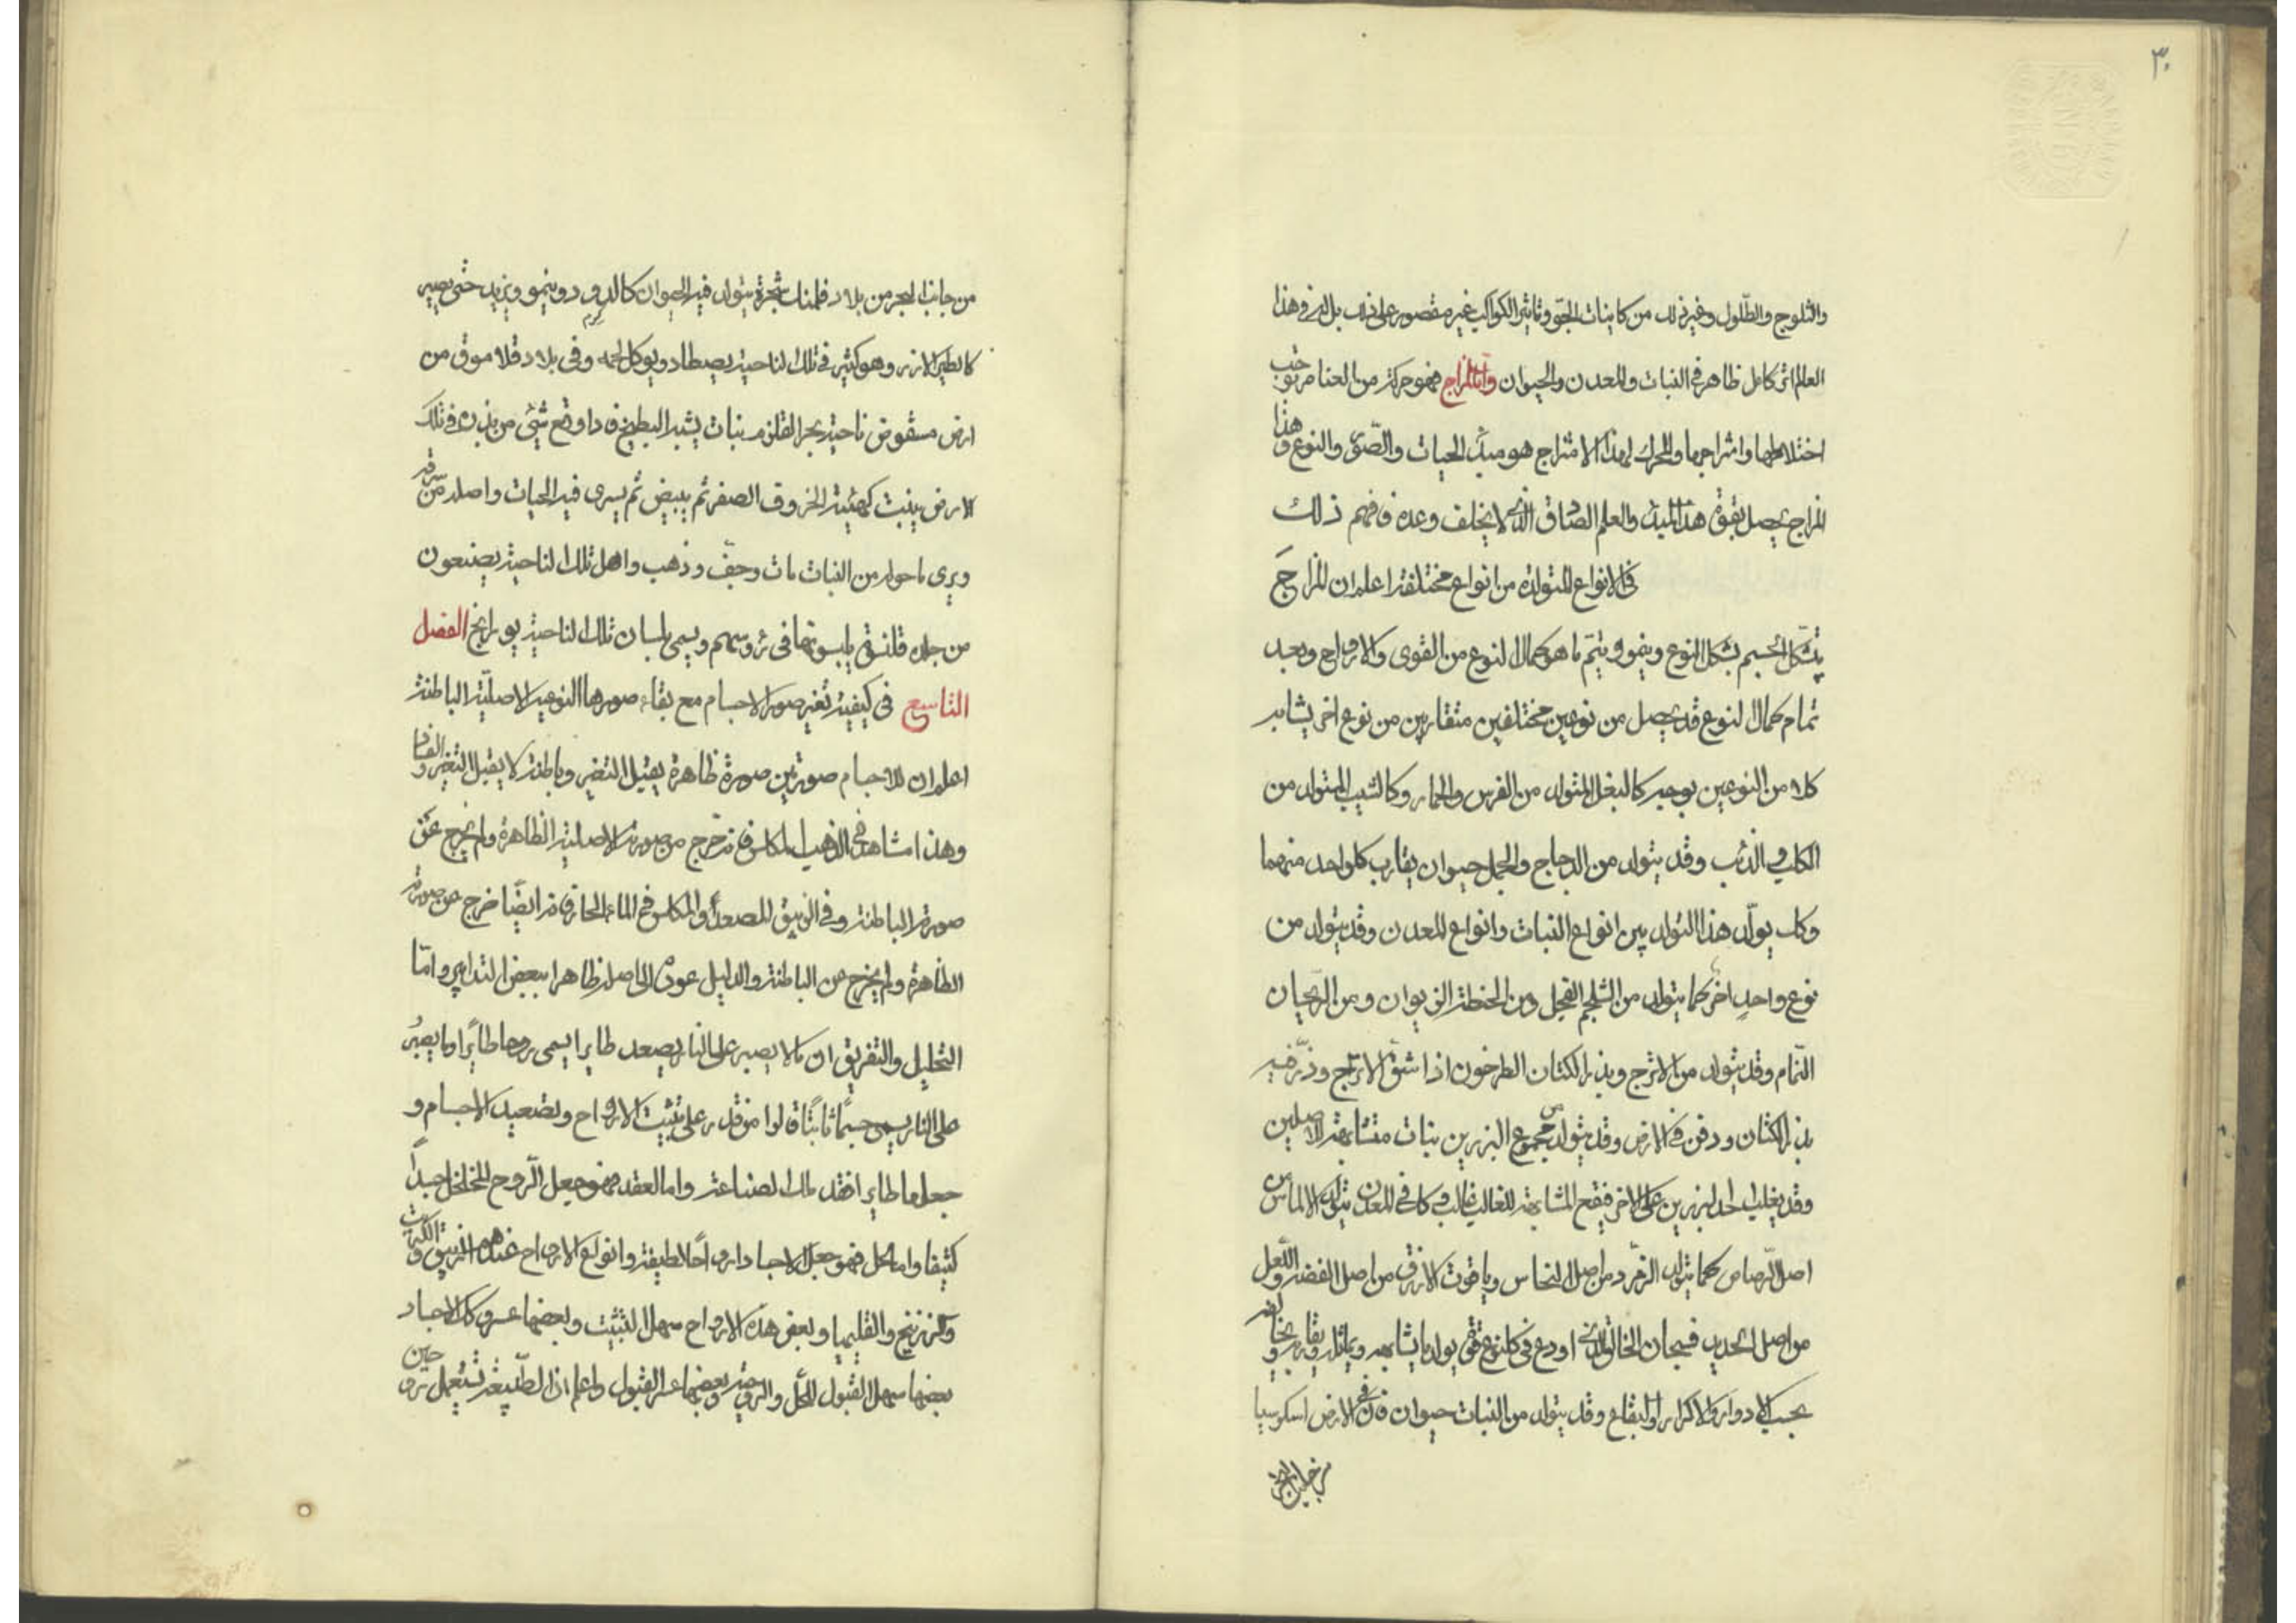 ٣٠
والثلوج والطّلول وغير ذلك من كاينات الجوّ وتاثير الكواكب غير مقصور على ذلك بل له فى هذا
العالم اثر كامل ظاهر فى النبات والمعدن والحيوان وامّا المزاج فهو حركة من العناصر توجب
اختلاطها وامتزاجها والمحرك لهذا الامتزاج هو مبدأ الحيات والصّور والنوع وهذا
المزاج يحصل بقوة هذا المبدأ والعلم الصادق الذى لا يخلف وعده فافهم ذلك
فى الانواع المتولدة من انواع مختلفة اعلم ان المزاج
يتشكّل الجسم بشكل النوع وينمو ويتمّ ما هو كمال النوع من القوى والارواح وبعد
تمام كمال النوع قد يحصل من نوعين مختلفين متقاربين من نوع اخر يشابه
كلا من النوعين بوجه كالبغل المتولد من الفرس والحمار وكالشيب المتولد من
الكلب والذئب وقد يتولد من الدجاج والحجل حيوان يقارب كل واحد منهما
وكك يولّد هذا التولد بين انواع النبات وانواع المعدن وقد يتولد من
نوع واحدٍ اخر كما يتولد من الشلجم الفجل ومن الحنطة الزيوان ومن الريحان
النّمام وقد يتولد من الاترج وبذر الكتان الطرخون اذا شقّ الاترج وذرّ فيه
بذر الكتان ودفن فى الارض وقد يتولد من مجموع البزرين نبات متشابهة الاصلين
وقد يغلب احد البزرين على الاخر فيقع المشابهة للغالب غالب وكا فى المعدن يتولد الالماس من
اصل الرّصاص كما يتولد الزمّرد من اصل النحاس وياقوت الازرق من اصل الفضة واللّعل
من اصل الحديد فسبحان الخالق الذى اودع فى كل نوع قوة يولد ما يشابهه ويماثله ويقاربه ويخالفه
بحسب الادوار والاكوار والبقاع وقد يتولد من النبات حيوان فان فى الارض اسكوسيا
من جانب البحر
من جانب البحر من بلاد فلمنك شجرة يتولد فيه الحيوان كالدود وينمو ويزيد حتى يصير
كالطير الازرر وهو كثير فى تلك الناحية يصطاد ويوكل لحمه وفى بلاد قلاموق من
ارض مسقو فى ناحية بحر القلزم نبات يشبه البطيخ فاذا وقع شئ من بذره فى تلك
الارض ينبت كهيئة الخروف الصغير ثم يبيض ثم يسرى فيه الحيات واصله من سرته
ويرى ما حوله من النبات مات وجفّ وذهب واهل تلك الناحية يصنعون
من جلده قلنسوة يلبسونها فى رؤسهم ويسمى بلسان تلك الناحية بورانج الفصل
التاسع فى كيفية تغير صور الاجسام مع بقاء صورها النوعية الاصلية الباطنة
اعلم ان للاجسام صورتين صورة ظاهرة يقبل التغير وباطنة لا يقبل التغير والفساد
وهذا مشاهد فى الذهب المكلس فانه خرج من صورته الاصلية الظاهرة ولم يخرج عن
صورته الباطنة وفى الزيبق المصعد والمكلس فى الماء الحار فانه ايضًا خرج عن صورته
الظاهرة ولم يخرج عن الباطنة والدليل عوده الى اصله ظاهرا ببعض التدابير وامّا
التحليل والتفريق ان ما لا يصبر على النار يصعد طايرا يسمى روحا طايرًا وما يصبُر
على النار يسمى جسمًا ثابتًا قالوا من قدر على تثبيت الارواح وتصعيد الاجسام و
جعلها طايرا فقد ملك الصناعة واما العقد فهو جعل الرّوح المخلخل جسدًا
كثيفا واما الحل فهو جعل الاجساد ارواحًا لطيفة وانواع الارواح عندهم الزيبق والكبريت
والزرنيخ والقليميا وبعض هذه الارواح سهل التثبيت وبعضها عسر وكك الاجساد
بعضها سهل القبول للحل والروحية وبعضها عسر القبول واعلم ان الطّبيعة تستعمل حين